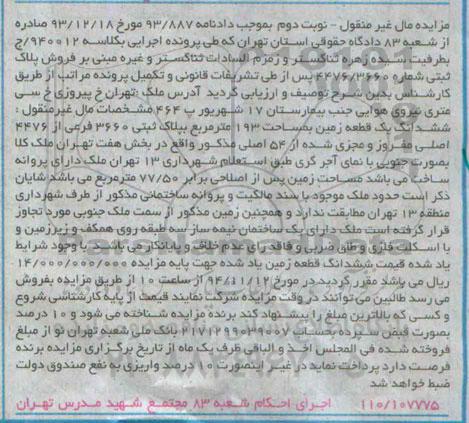 مزایده مال غیر منقول - نوبت دوم بموجب دادنامه ۹۳/۸۸۷ مورخ ۹۳/۱۲/۱۸ صادره
از شعبه ۸۳ دادگاه حقوقی استان تهران که طی پرونده اجرایی بکلاسه ۹۴۰۰۱۲/ج
بطرفیت سیده زهره ثناگستر و زمزم السادات ثناگستر و غیره مبنی بر فروش پلاک
ثبتی شماره ۴۴۷۶/۳۶۶۰ پس از طی تشریفات قانونی و تکمیل پرونده مراتب از طریق
کارشناس بدین شرح توصیف و ارزیابی گردید آدرس ملک :تهران خ پیروزی خ سی
متری نیروی هوایی جنب بیمارستان ۱۷ شهریور پ ۴۶۴ مشخصات مال غیرمنقول :
ششدانگ یک قطعه زمین بمساحت ۱۹۳ مترمربع بپلاک ثبتی ۳۶۶۰ فرعی از ۴۴۷۶
اصلی مفروز و مجزی شده از ۵۴ اصلی مذکور واقع در بخش هفت تهران ملک کلا
بصورت جنوبی با نمای آجر گری طبق استعلام شهرداری ۱۳ تهران ملک دارای پروانه
ساخت می باشد مساحت زمین پس از اصلاحی برابر ۷۷/۵۰ مترمربع می باشد شایان
ذکر است حدود ملک موجود با سند مالکیت و پروانه ساختمانی مذکور از طرف شهرداری
منطقه ۱۳ تهران مطابقت ندارد و همچنین زمین مذکور از سمت ملک جنوبی مورد تجاوز
قرار گرفته است ملک دارای یک ساختمان نیمه ساز سه طبقه روی همکف و زیرزمین و
با اسکلت فلزی و طاق ضربی و فاقد رای عدم خلاف و پایانکار می باشد با وجود شرایط
یاد شده قیمت ششدانگ قطعه زمین یاد شده جهت پایه مزایده ۱۴/۰۰۰/۰۰۰/۰۰۰
ریال می باشد مقرر گردید در مورخ ۹۴/۱۱/۱۲ از ساعت ۱۰ از طریق مزایده بفروش
می رسد طالبین می توانند در وقت مزایده شرکت نمایند قیمت از پایه کارشناسی شروع
و کسی که بالاترین مبلغ را پیشنهاد کند برنده مزایده شناخته می شود و ۱۰ درصد
بصورت قبض سپرده بحساب ۲۱۷۱۲۹۹۰۳۹۰۰۷ بانک ملی شعبه تهران نو از مبلغ
فروخته شده فی المجلس اخذ و الباقی ظرف یک ماه از تاریخ برگزاری مزایده برنده
فرصت دارد پرداخت نماید در غیر اینصورت ۱۰ درصد واریزی به نفع صندوق دولت
ضبط خواهد شد
۱۱۰/۱۰۷۷۷۵ اجرای احکام شعبه ۸۳ مجتمع شهید مدرس تهران